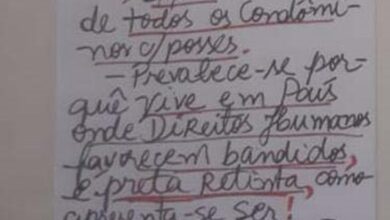 de todos os Condômi-
nos c/posses.
— Prevalece-se por-
quê vive em País
onde Direitos Humanos
favorecem bandidos,
e preta Retinta, como
apresenta-se ser!